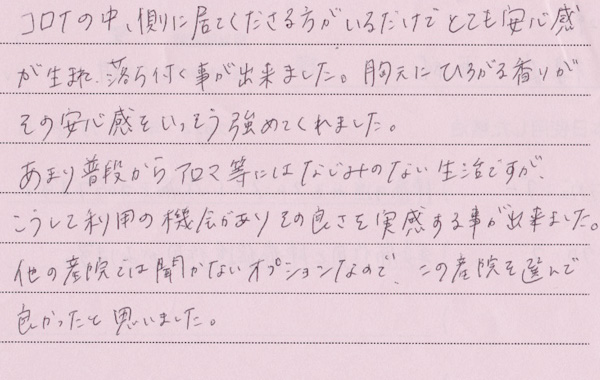 コロナの中、側に居てくださる方がいるだけでとても安心感
が生まれ、落ち付く事が出来ました。胸元にひろがる香りが
その安心感をいっそう強めてくれました。
あまり普段からアロマ等にはなじみのない生活ですが、
こうして利用の機会がありその良さを実感する事が出来ました。
他の産院では聞かないオプションなので、この産院を選んで
良かったと思いました。